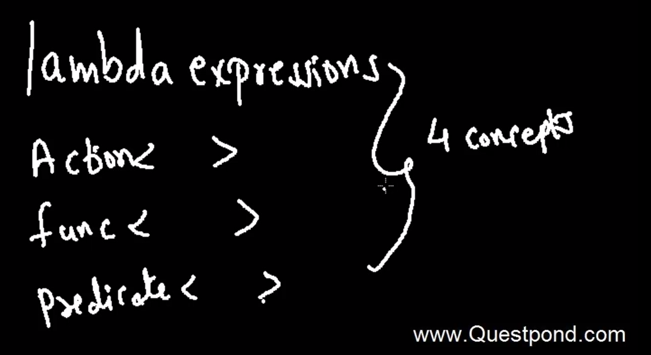 lambda expressions
Action< >
func< >
predicate< >
4 concepts
www.Questpond.com